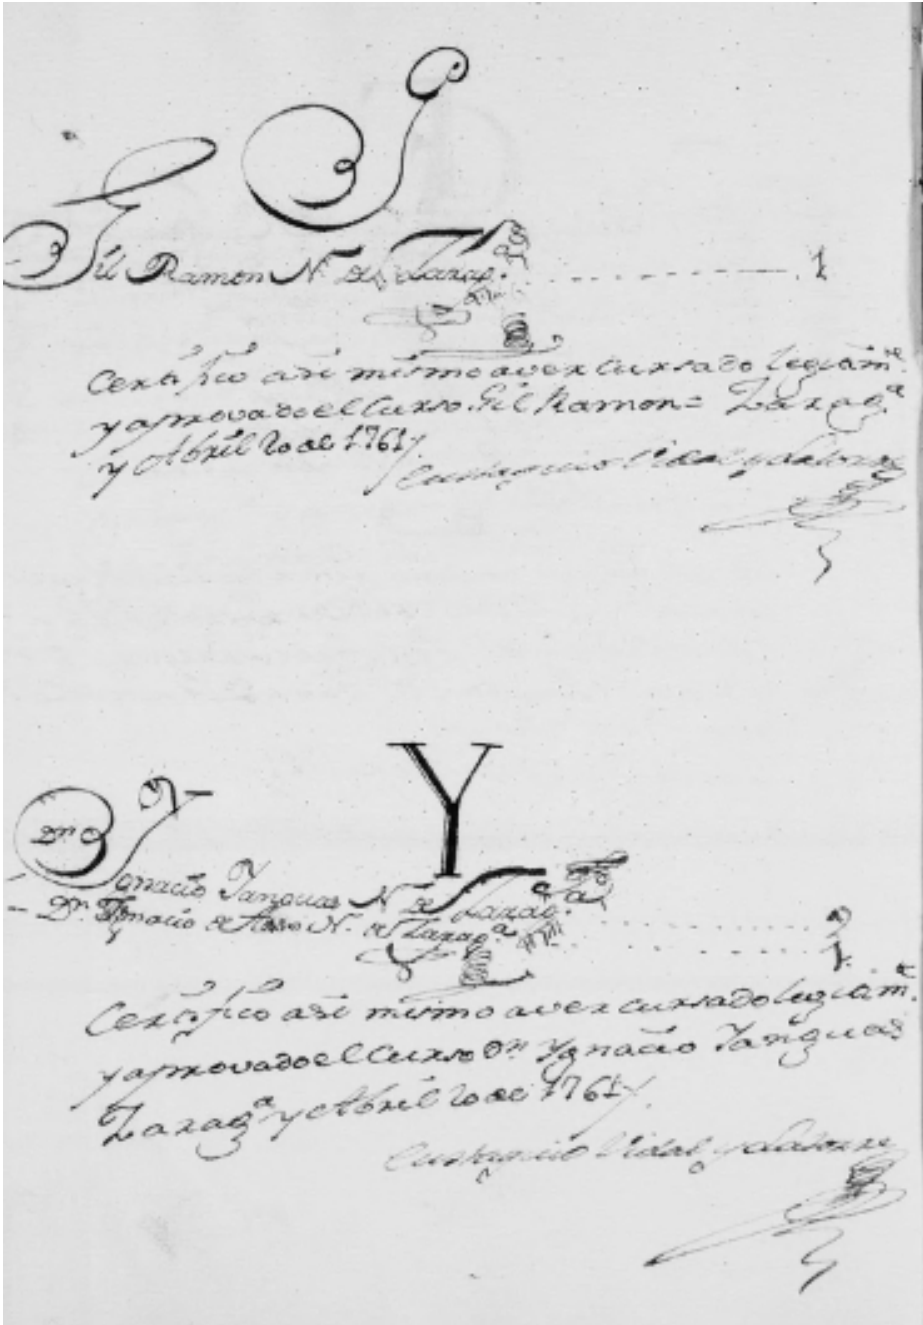 G
Gil Ramon N. de Zarag.ª 1
Certifico asi mismo aver cursado legiam.te
y aprovado el Curso Gil Ramon = Zarag.ª
y Abril 20 de 1761
Eustaquio Vidal y
Y
Dn. Ygnacio Tanguas N. de Zarag.ª 2
Dn. Ignacio de Asso N. de Zarag.ª 1
Certifico asi mismo aver cursado legiam.te
y aprovado el Curso Dn Ygnacio Tanguas
Zarag.ª y Abril 20 de 1761
Eustaquio Vidal y